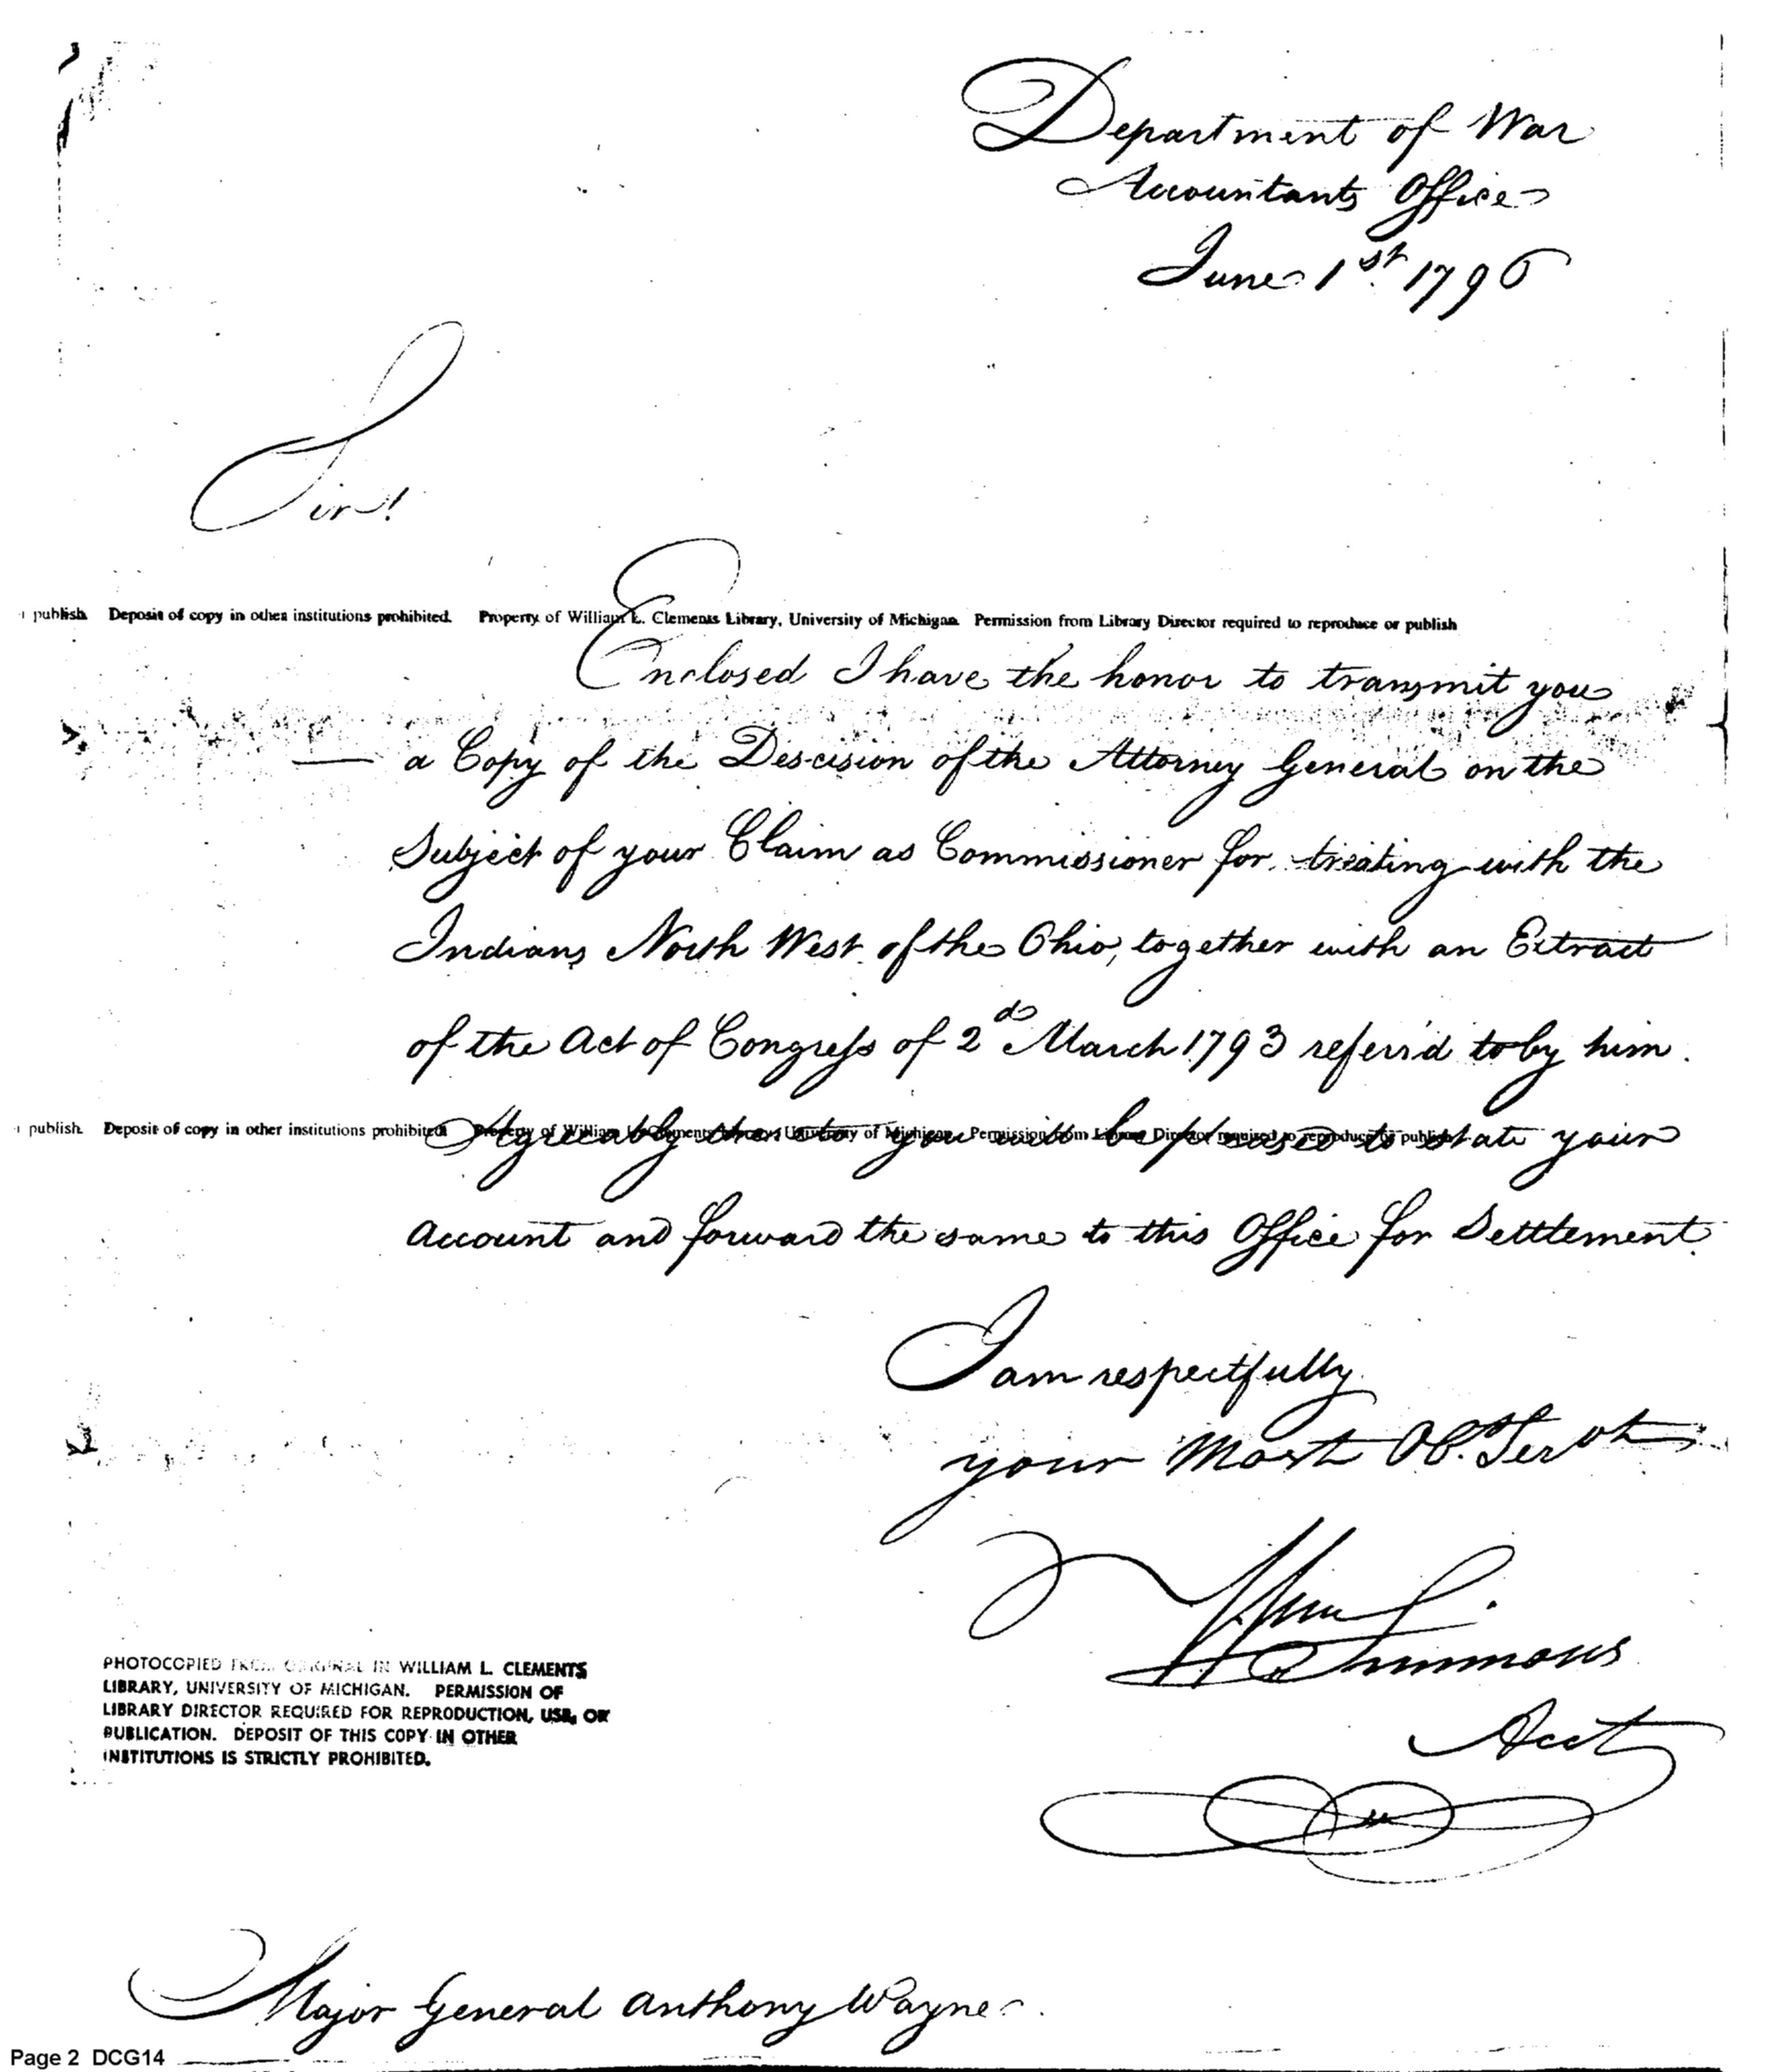 Department of War
Accountants Office
June 1st 1796
Sir!
publish. Deposit of copy in other institutions prohibited. Property of William L. Clements Library, University of Michigan. Permission from Library Director required to reproduce or publish
Enclosed I have the honor to transmit you
a Copy of the Descision of the Attorney General on the
Subject of your Claim as Commissioner for treating with the
Indians North West of the Ohio, together with an Extract
of the Act of Congress of 2d March 1793 referr'd to by him.
publish. Deposit of copy in other institutions prohibited. Property of William L. Clements Library, University of Michigan. Permission from Library Director required to reproduce or publish
Agreeably thereto you will be pleased to state your
Account and forward the same to this Office for Setttlement.
I am respectfully
your Most Ob. Servt
Wm Simmons
Acct
PHOTOCOPIED FROM ORIGINAL IN WILLIAM L. CLEMENTS
LIBRARY, UNIVERSITY OF MICHIGAN. PERMISSION OF
LIBRARY DIRECTOR REQUIRED FOR REPRODUCTION, USE, OR
PUBLICATION. DEPOSIT OF THIS COPY IN OTHER
INSTITUTIONS IS STRICTLY PROHIBITED.
Major General Anthony Wayne
Page 2 DCG14